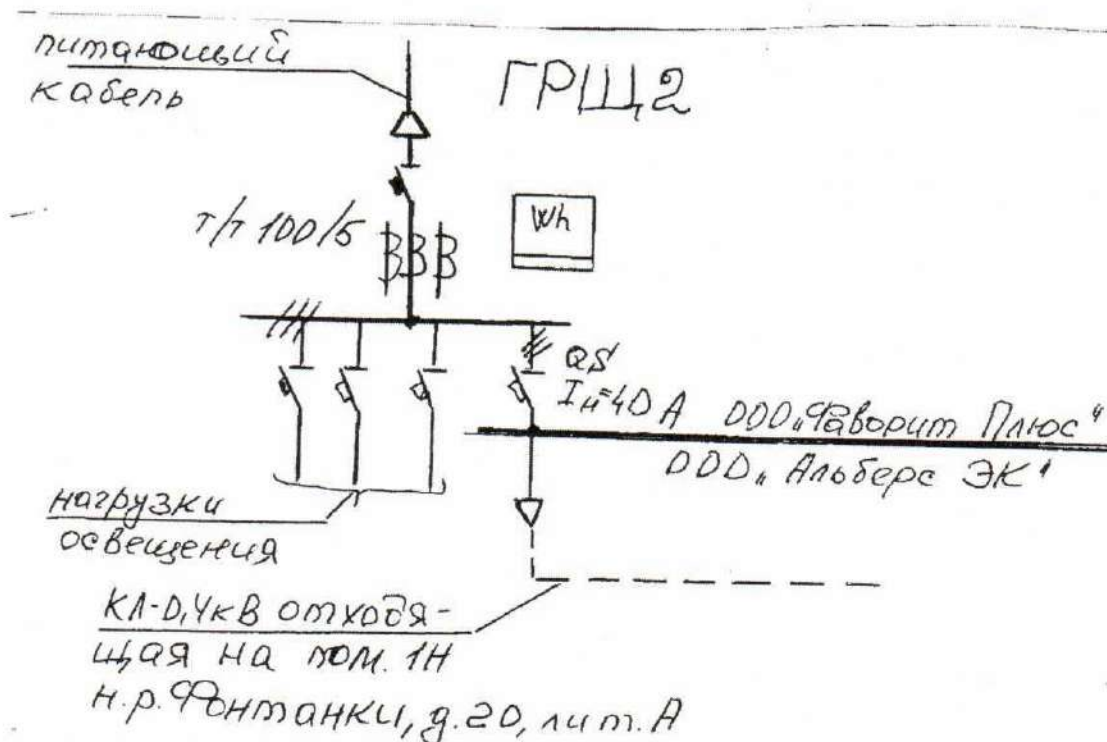 питающий
кабель
ГРЩ2
т/т 100/5
Wh
QS
Iн=40 А
ООО „Фаворит Плюс"
ООО „Альберс ЭК"
нагрузки
освещения
КЛ-0,4кВ отходя-
щая на пом. 1Н
н.р. Фонтанки, д.20, лит. А